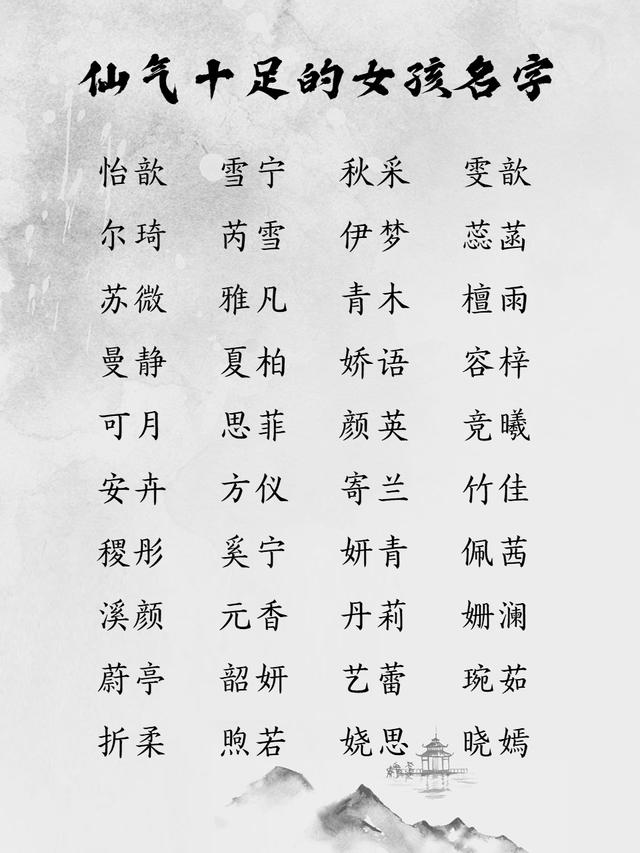 仙气十足的女孩名字
怡歆 雪宁 秋采 雯歆
尔琦 芮雪 伊梦 蕊菡
苏微 雅凡 青木 檀雨
曼静 夏柏 娇语 容梓
可月 思菲 颜英 竞曦
安卉 方仪 寄兰 竹佳
稷彤 奚宁 妍青 佩茜
溪颜 元香 丹莉 姗澜
蔚亭 韶妍 艺蕾 琬茹
折柔 煦若 娆思 晓嫣